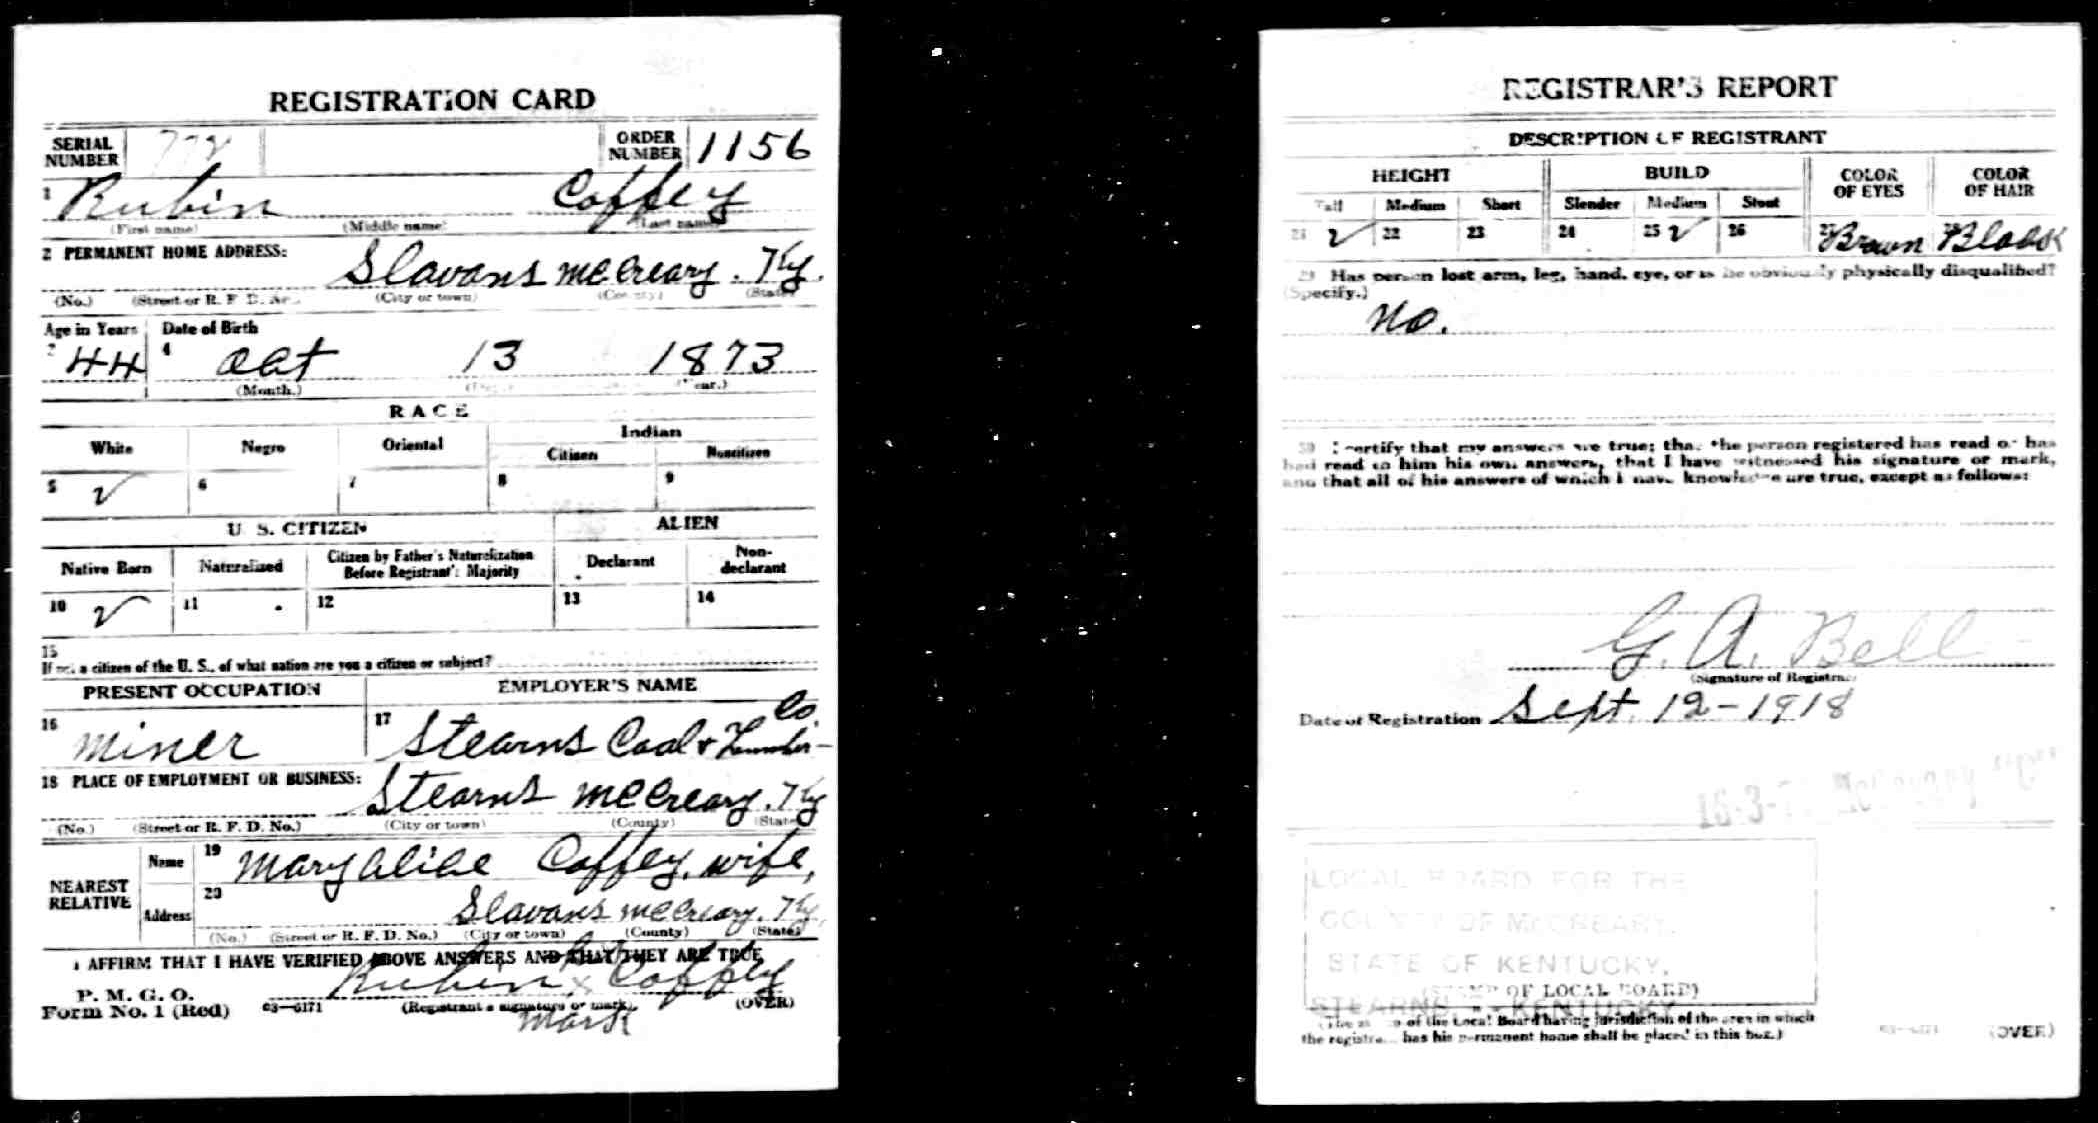 REGISTRATION CARD
SERIAL NUMBER 772 ORDER NUMBER 1156
1 Rubin Coffey
(First name) (Middle name) (Last name)
2 PERMANENT HOME ADDRESS:
Slavans McCreary. Ky.
(No.) (Street or R. F. D. No.) (City or town) (County) (State)
Age in Years Date of Birth
3 44 4 Oct 13 1873
(Month.) (Day.) (Year.)
RACE
White Negro Oriental Indian
Citizen Noncitizen
5 ✓ 6 7 8 9
U. S. CITIZEN ALIEN
Native Born Naturalized Citizen by Father's Naturalization Before Registrant's Majority Declarant Non-declarant
10 ✓ 11 12 13 14
15
If not a citizen of the U. S., of what nation are you a citizen or subject?
PRESENT OCCUPATION EMPLOYER'S NAME
16 Miner 17 Stearns Coal & Lumber Co.
18 PLACE OF EMPLOYMENT OR BUSINESS:
Stearns McCreary. Ky
(No.) (Street or R. F. D. No.) (City or town) (County) (State)
NEAREST RELATIVE
Name 19 Mary Alice Coffey, wife,
Address 20 Slavans McCreary. Ky.
(No.) (Street or R. F. D. No.) (City or town) (County) (State)
I AFFIRM THAT I HAVE VERIFIED ABOVE ANSWERS AND THAT THEY ARE TRUE
P. M. G. O.
Form No. 1 (Red) 03—6171 Rubin x Coffey
(Registrant's signature or mark) (OVER)
mark
REGISTRAR'S REPORT
DESCRIPTION OF REGISTRANT
HEIGHT BUILD COLOR OF EYES COLOR OF HAIR
Tall Medium Short Slender Medium Stout
21 ✓ 22 23 24 25 ✓ 26 27 Brown 28 Black
29 Has person lost arm, leg, hand, eye, or is he obviously physically disqualified?
(Specify.)
No.
30 I certify that my answers are true; that the person registered has read or has
had read to him his own answers, that I have witnessed his signature or mark,
and that all of his answers of which I have knowledge are true, except as follows:
G. A. Bell
(Signature of Registrar)
Date of Registration Sept. 12-1918
LOCAL BOARD FOR THE
COUNTY OF McCREARY,
STATE OF KENTUCKY,
(STAMP OF LOCAL BOARD)
STEARNS, KENTUCKY
(The stamp of the Local Board having jurisdiction of the area in which
the registrant has his permanent home shall be placed in this box.)
03—6171 (OVER)